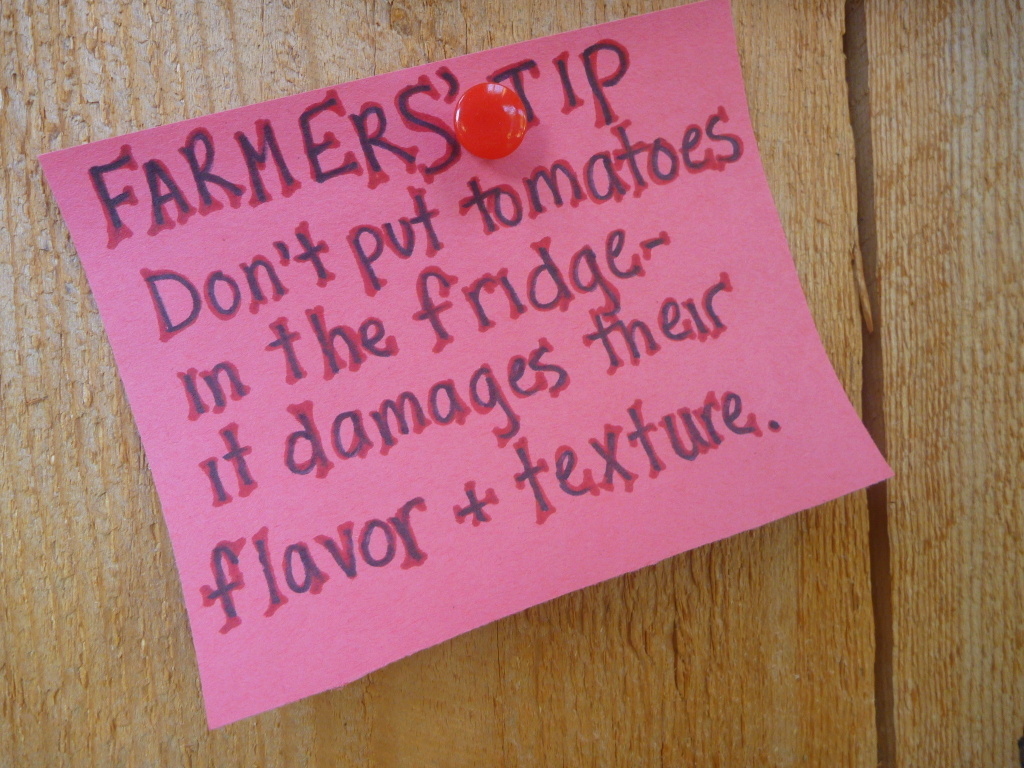 FARMERS' TIP
Don't put tomatoes
in the fridge-
it damages their
flavor + texture.